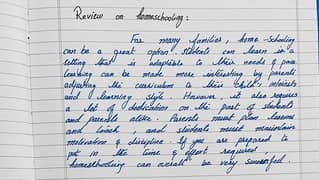 Review on homeschooling :
For many families, home-schooling
can be a great option. Students can learn in a
setting that is adaptable to their needs & pace
learning can be made more interesting by parents
adjusting the curriculum to their child's interests
and learning style. However, it also requires
a lot of dedication on the part of students
and parents alike. Parents must plan lessons
and teach, and students must maintain
motivation & discipline. If you are prepared to
put in the time & effort required
homeschooling can overall be very